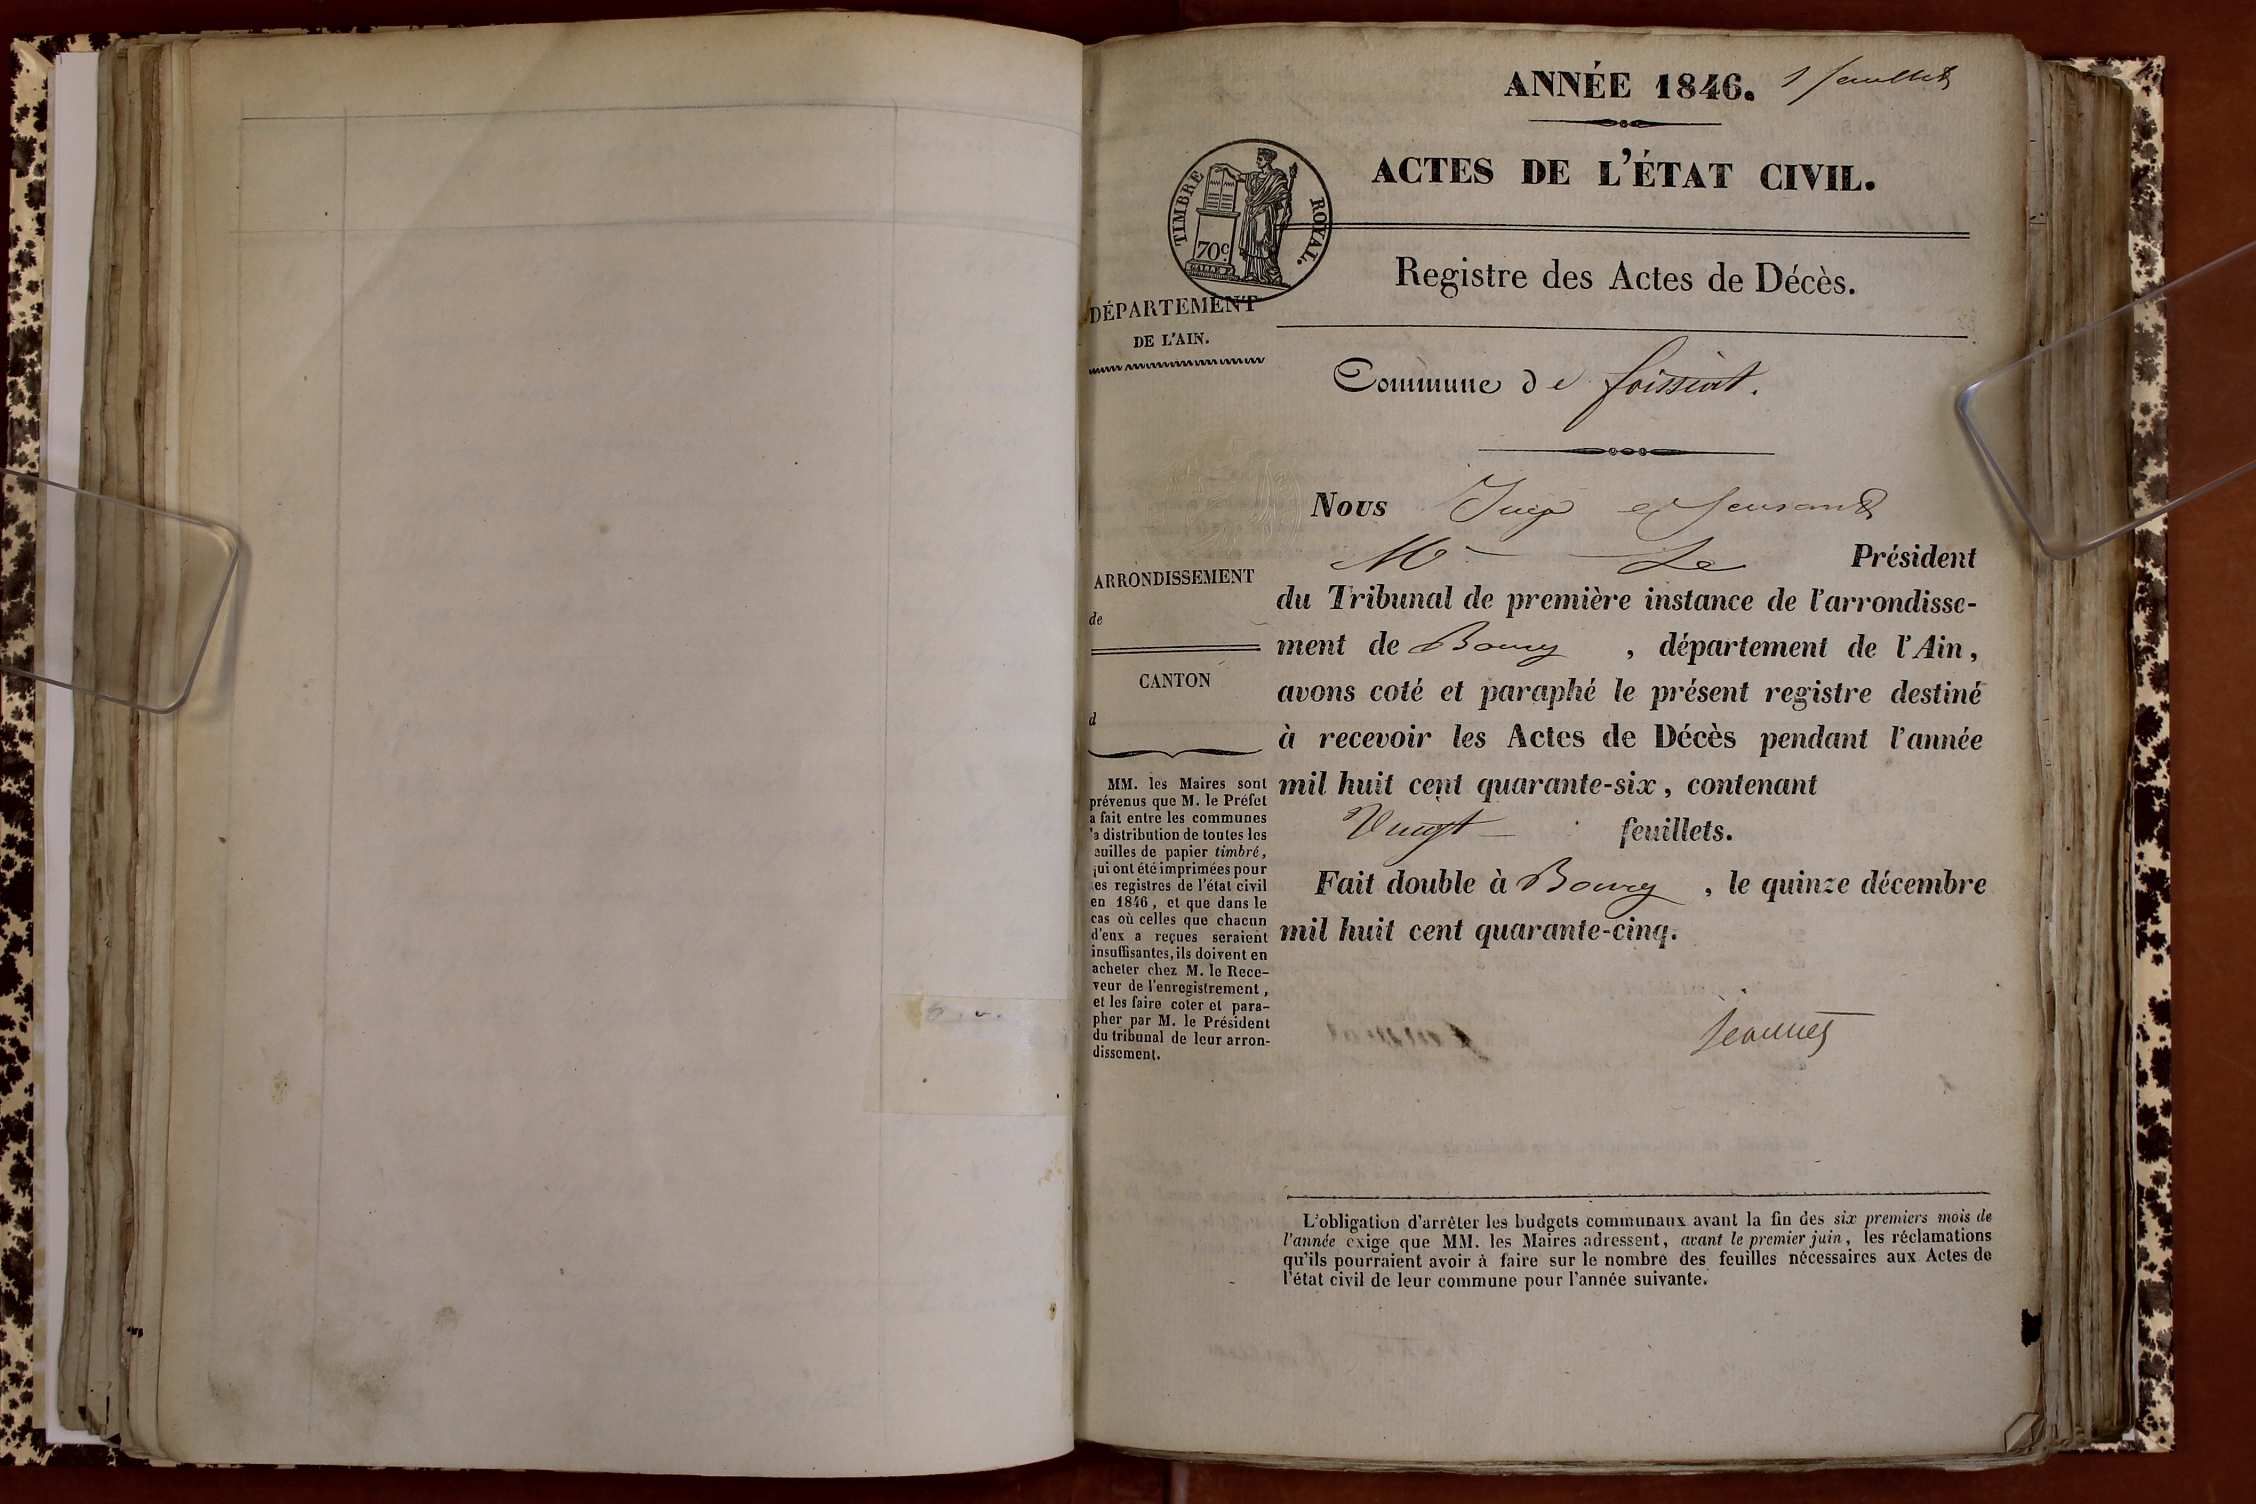 ANNÉE 1846. 1 feuillet
ACTES DE L'ÉTAT CIVIL.
TIMBRE ROYAL.
70c.
Registre des Actes de Décès.
DÉPARTEMENT
DE L'AIN.
Commune de foissiat.
Nous Juge
Mr Le Président
du Tribunal de première instance de l'arrondisse-
ment de Bourg, département de l'Ain,
avons coté et paraphé le présent registre destiné
à recevoir les Actes de Décès pendant l'année
mil huit cent quarante-six, contenant
Vingt feuillets.
Fait double à Bourg, le quinze décembre
mil huit cent quarante-cinq.
ARRONDISSEMENT
de
CANTON
d
MM. les Maires sont
prévenus que M. le Préfet
a fait entre les communes
la distribution de toutes les
euilles de papier timbré,
qui ont été imprimées pour
les registres de l'état civil
en 1846, et que dans le
cas où celles que chacun
d'eux a reçues seraient
insuffisantes, ils doivent en
acheter chez M. le Rece-
veur de l'enregistrement,
et les faire coter et para-
pher par M. le Président
du tribunal de leur arron-
dissement.
L'obligation d'arrêter les budgets communaux avant la fin des six premiers mois de
l'année exige que MM. les Maires adressent, avant le premier juin, les réclamations
qu'ils pourraient avoir à faire sur le nombre des feuilles nécessaires aux Actes de
l'état civil de leur commune pour l'année suivante.